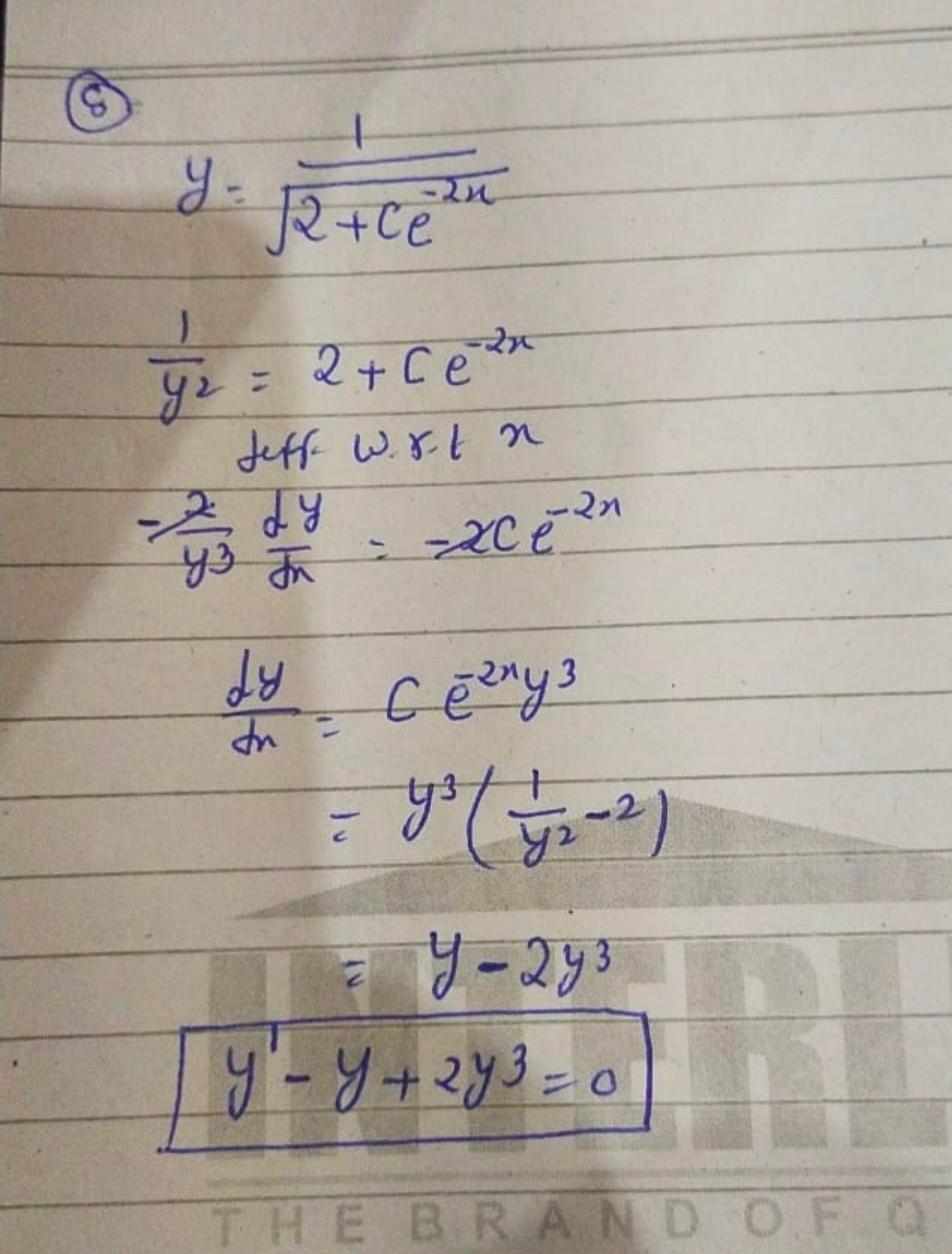 8
y = 1/√(2+Ce^-2x)
1/y² = 2+Ce^-2x
diff. w.r.t x
-2/y³ dy/dx = -2Ce^-2x
dy/dx = Ce^-2x y³
= y³(1/y² - 2)
= y - 2y³
y' - y + 2y³ = 0
INTERL
THE BRAND OF Q